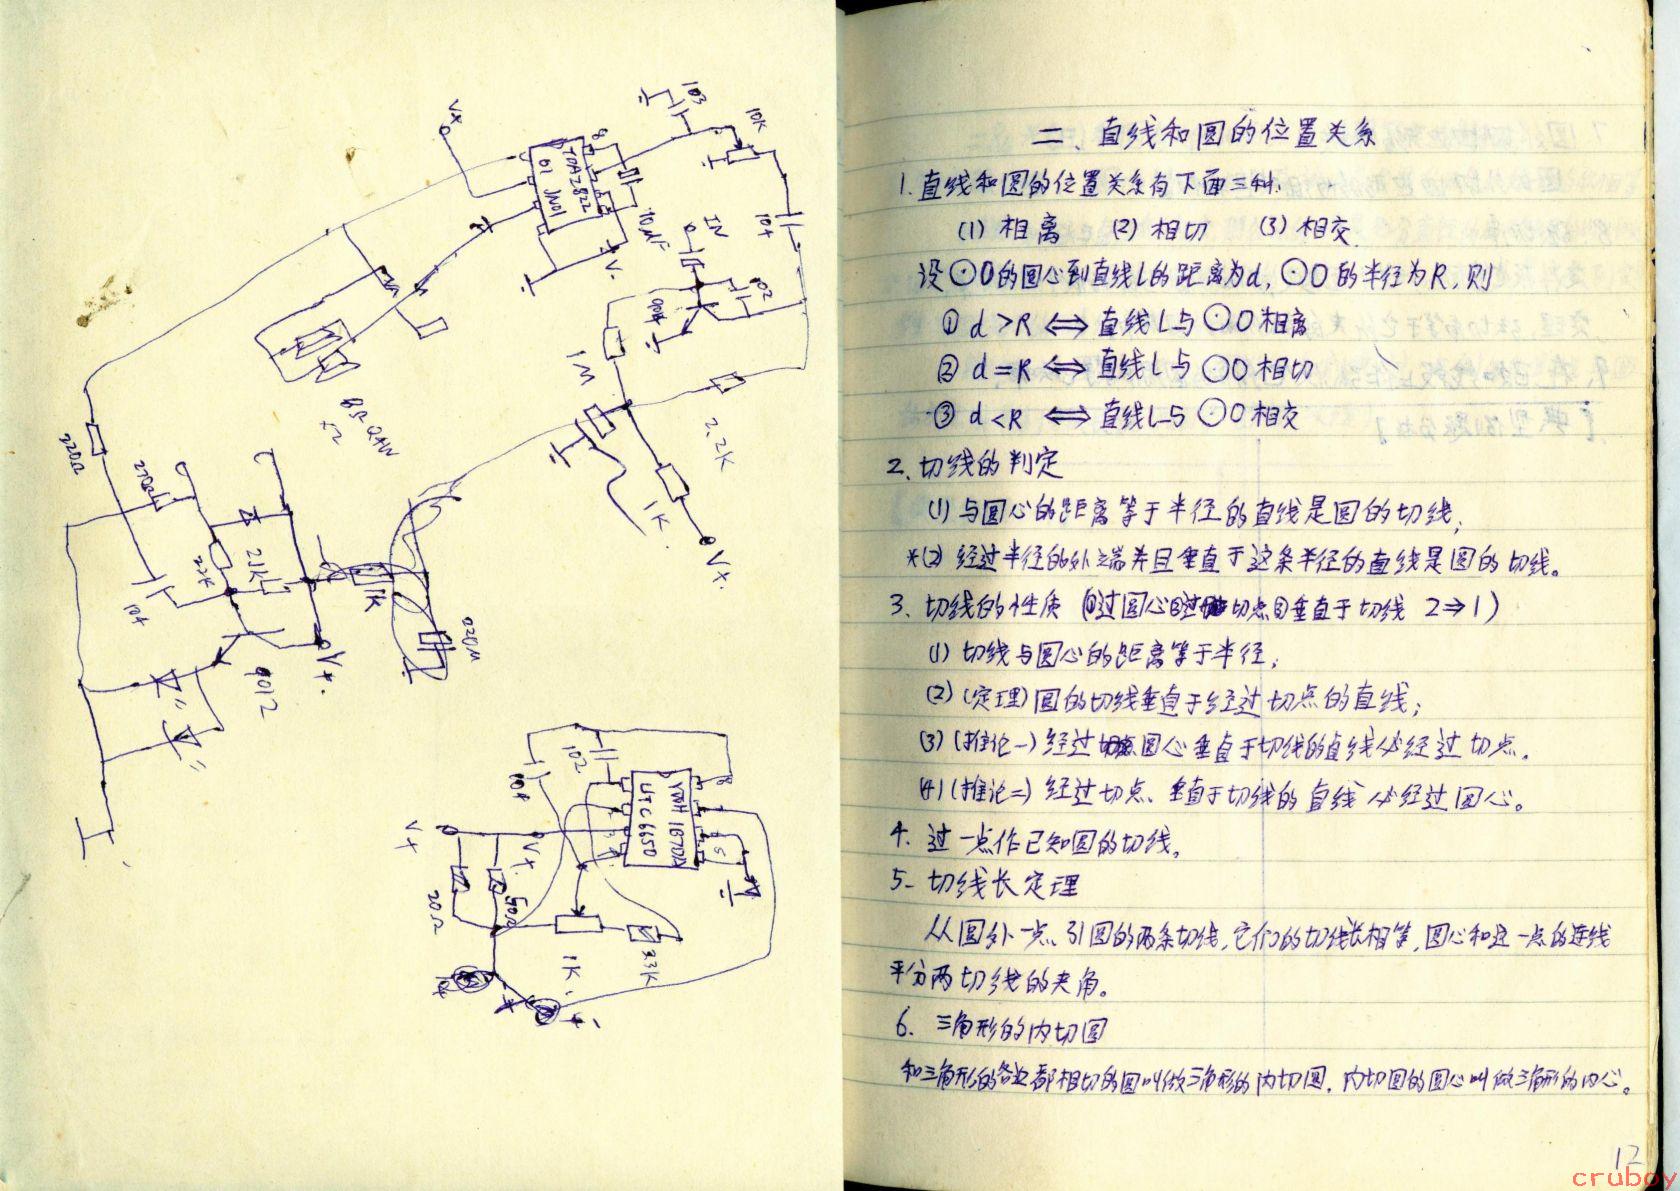 V+
103
10K
8
TDA2822
104
10μF
IN
V.
102
1M
2.2K
1K
V+
220Ω
104
1K
220μ
V+.
9012
102
104
8
6
5
UTC6650
V+
V+
20Ω
50Ω
1K
3.3K
104
二、直线和圆的位置关系
1.直线和圆的位置关系有下面三种.
(1) 相离 (2) 相切 (3) 相交
设⊙O的圆心到直线L的距离为d,⊙O的半径为R,则
① d>R ⟺ 直线L与⊙O相离
② d=R ⟺ 直线L与⊙O相切
③ d<R ⟺ 直线L与⊙O相交
2、切线的判定
(1) 与圆心的距离等于半径的直线是圆的切线;
*(2) 经过半径的外端并且垂直于这条半径的直线是圆的切线。
3、切线的性质 (①过圆心②过切点③垂直于切线 2⇒1)
(1) 切线与圆心的距离等于半径;
(2) (定理)圆的切线垂直于经过切点的直线;
(3) (推论一) 经过圆心垂直于切线的直线必经过切点.
(4) (推论二) 经过切点、垂直于切线的直线必经过圆心。
4. 过一点作已知圆的切线。
5- 切线长定理
从圆外一点引圆的两条切线,它们的切线长相等,圆心和这一点的连线
平分两切线的夹角。
6、三角形的内切圆
和三角形的各边都相切的圆叫做三角形的内切圆,内切圆的圆心叫做三角形的内心。
12
cruboy